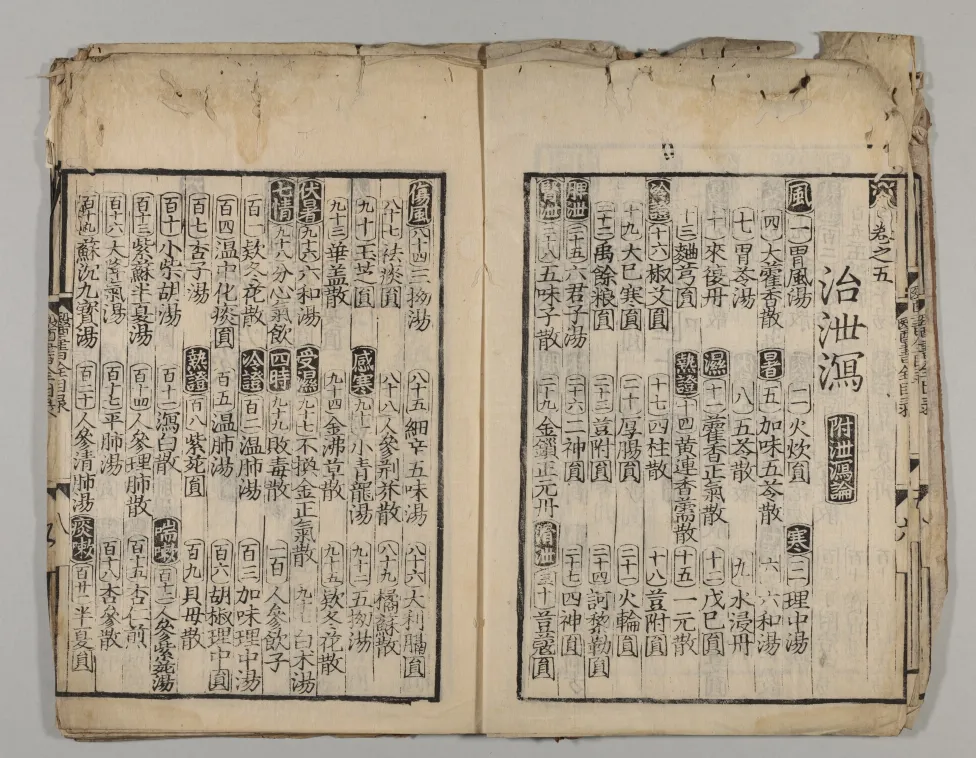 卷之五
治泄瀉 附泄瀉論
風 一 胃風湯 二 火炊圓 寒 三 理中湯
四 大藿香散 暑 五 加味五苓散 六 六和湯
七 胃苓湯 八 五苓散 九 水浸丹
十 來復丹 濕 十一 藿香正氣散 十二 戊巳圓
十三 麯芎圓 熱證 十四 黃連香薷散 十五 一元散
冷證 十六 椒艾圓 十七 四柱散 十八 荳附圓
十九 大巳寒圓 二十 厚腸圓 二十一 火輪圓
二十二 禹餘粮圓 二十三 荳附圓 二十四 訶黎勒圓
脾泄 二十五 六君子湯 二十六 二神圓 二十七 四神圓
腎泄 二十八 五味子散 二十九 金鎖正元丹 滑泄 三十 荳蔻圓
傷風 八十四 三拗湯 八十五 細辛五味湯 八十六 大利膈圓
八十七 祛痰圓 八十八 人參荆芥散 八十九 橘蘇散
九十 玉芝圓 感寒 九十一 小青龍湯 九十二 五拗湯
九十三 華盖散 九十四 金沸草散 九十五 欵冬花散
伏暑 九十六 六和湯 受濕 九十七 不換金正氣散 白术湯
七情 九十八 分心氣飲 四時 九十九 敗毒散 一百 人參飲子
百一 欵冬花散 冷證 百二 温肺湯 百三 加味理中湯
百四 温中化痰圓 百五 温肺湯 百六 胡椒理中圓
百七 杏子湯 熱證 百八 紫菀圓 百九 貝母散
百十 小柴胡湯 百十一 瀉白散 喘嗽 百十二 人參紫菀湯
百十三 紫蘇半夏湯 百十四 人參理肺散 百十五 杏仁煎
百十六 大降氣湯 百十七 平肺湯 百十八 杏參散
百十九 蘇沉九寶湯 百二十 人參清肺湯 痰嗽 百廿一 半夏圓
醫書全目錄
八